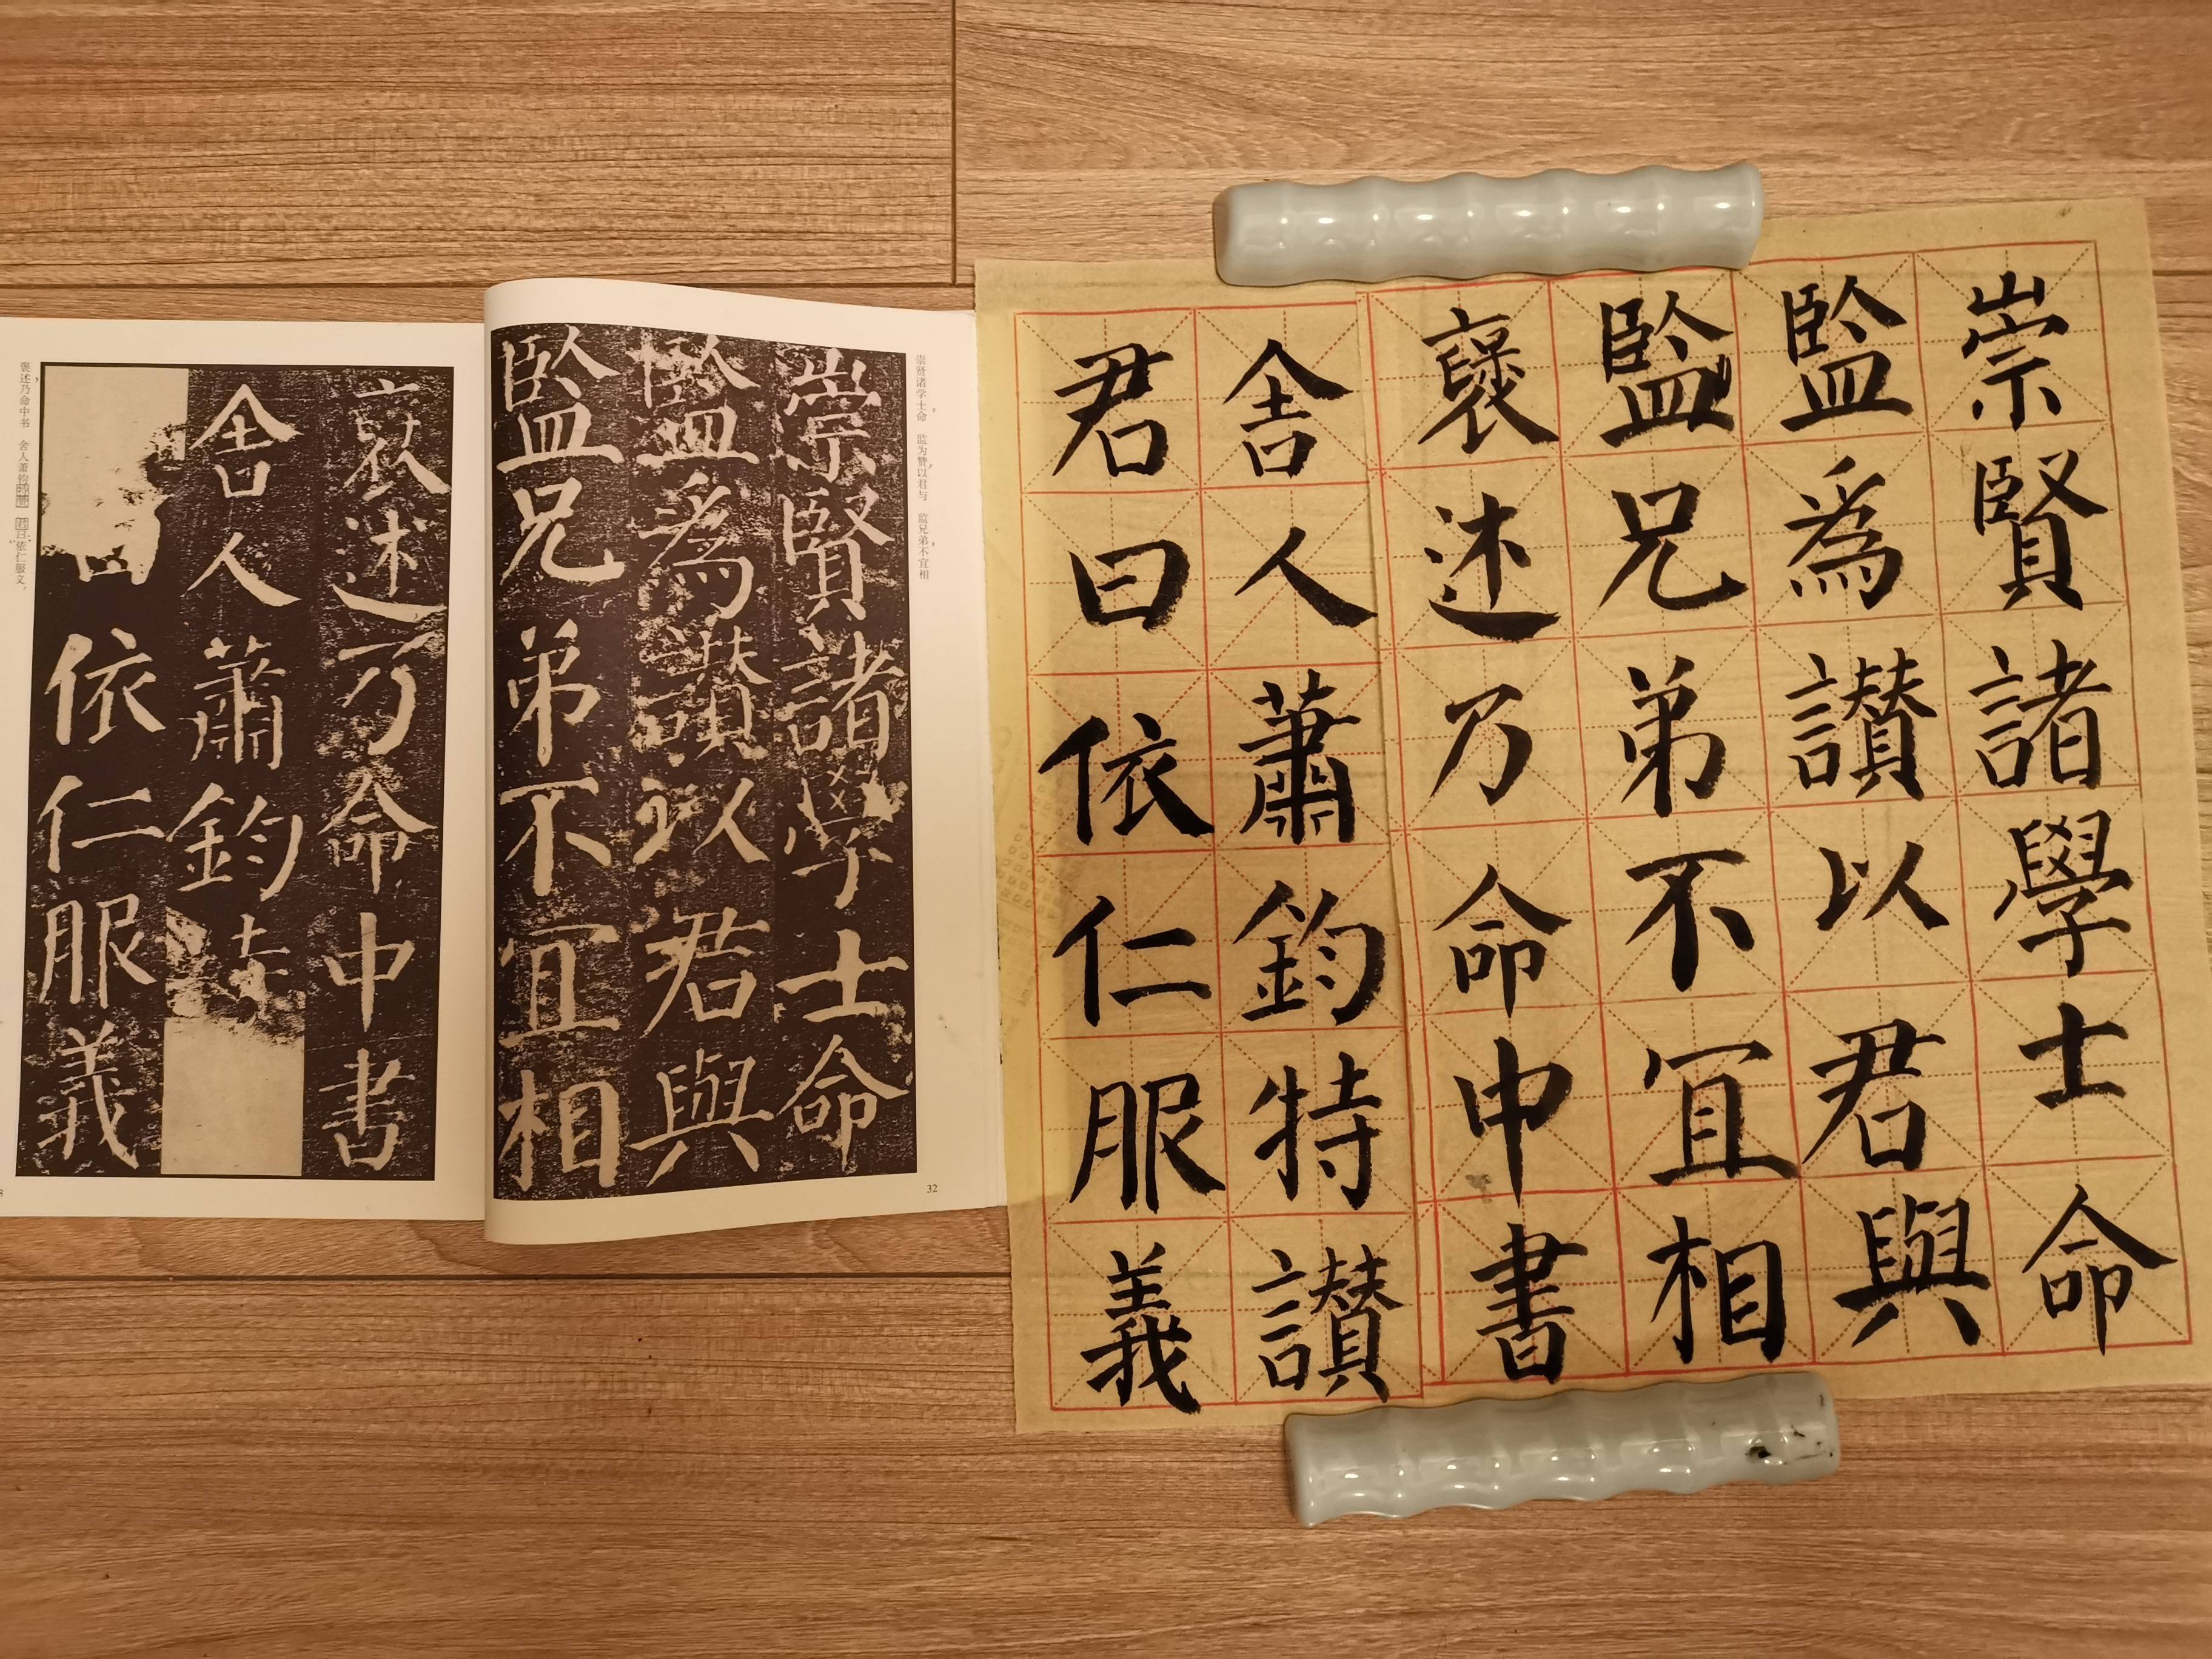 崇賢諸學士命
監爲讃以君與
監兄弟不宜相
褒述乃命中書
舍人蕭鈞特讃
君曰依仁服義
崇贤诸学士命，监为赞，以君与监兄弟，不宜相
32
崇賢諸學士命
監爲讃以君與
監兄弟不宜相
褒述，乃命中书舍人萧钧特赞君曰：“依仁服义。
褒述乃命中書
舍人蕭鈞特
曰依仁服義